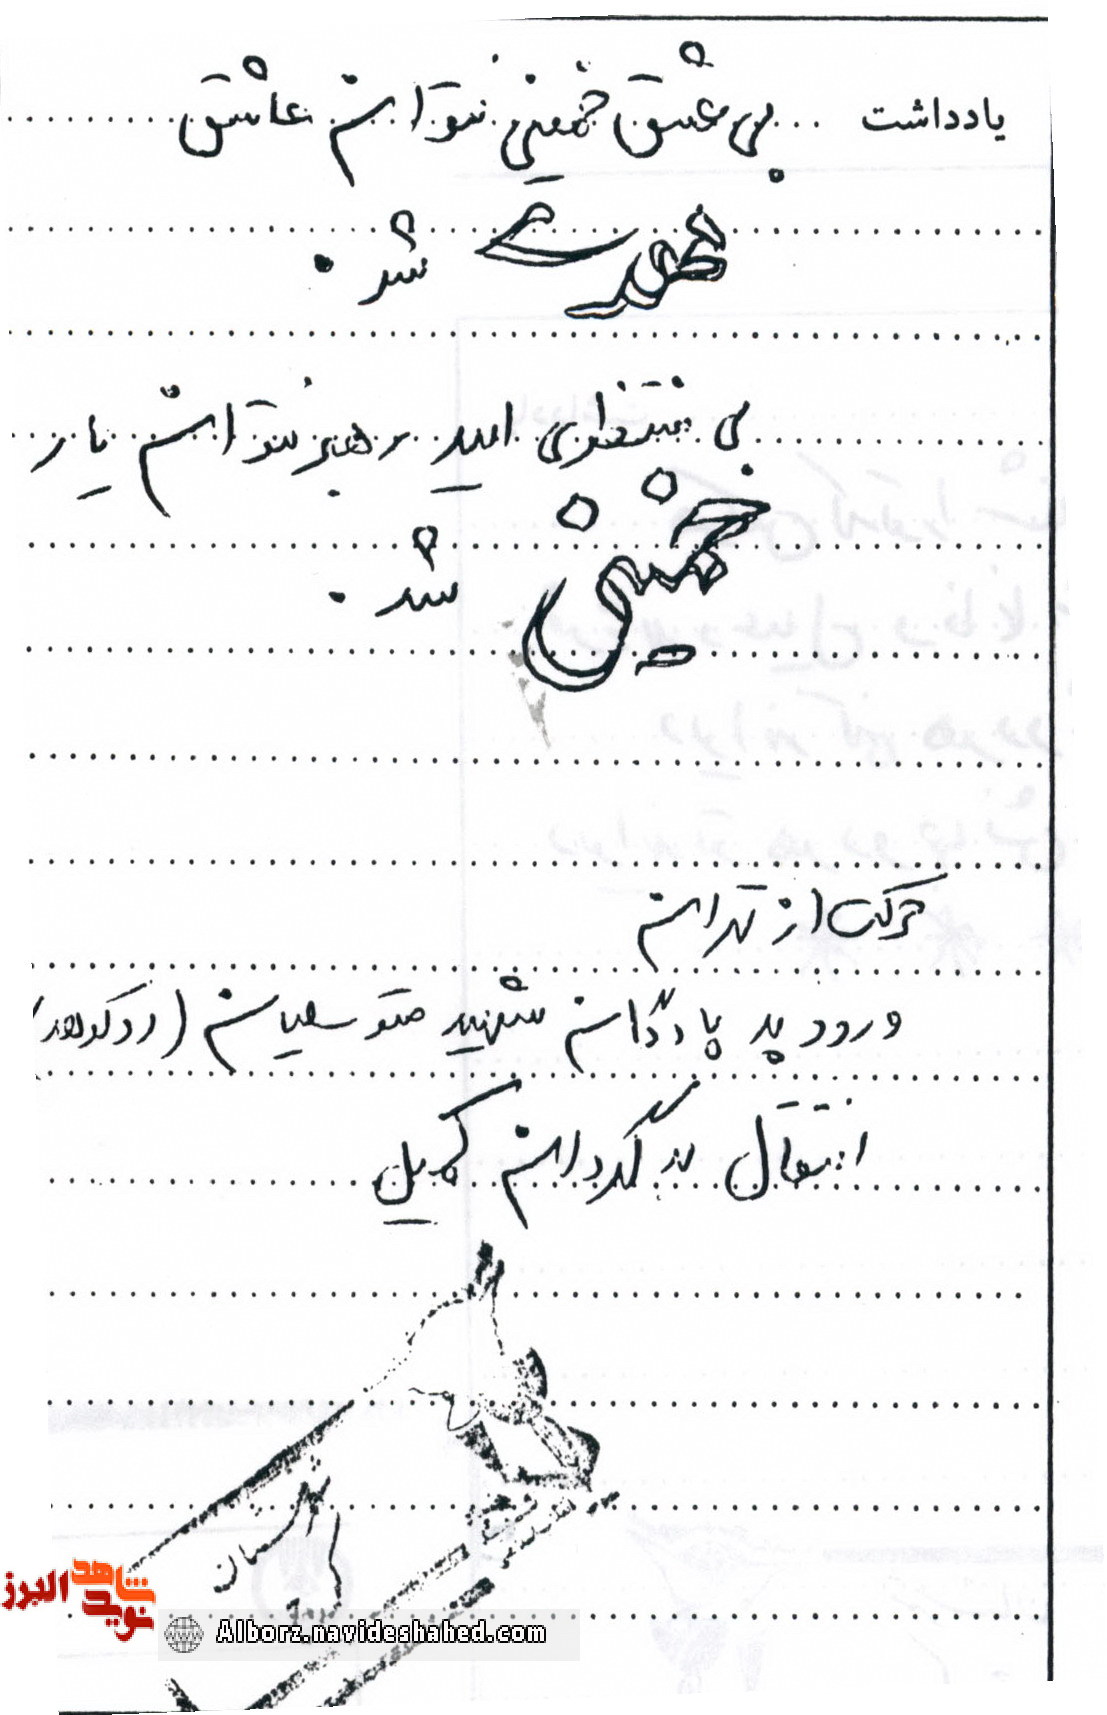 یادداشت
بی عشق خمینی نتوان عاشق
مهدی شد.
بی منتظری امید رهبر نتوان یار
خمینی شد.
حرکت از تهران
ورود به پادگان شهید متوسلیان (
انتقال به گردان کمیل
نوید شاهد البرز
Alborz.navideshahed.com